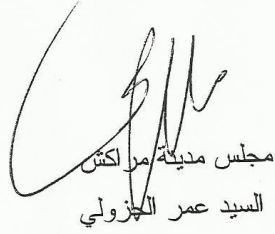 مجلس مدينة مراكش
السيد عمر الجزولي